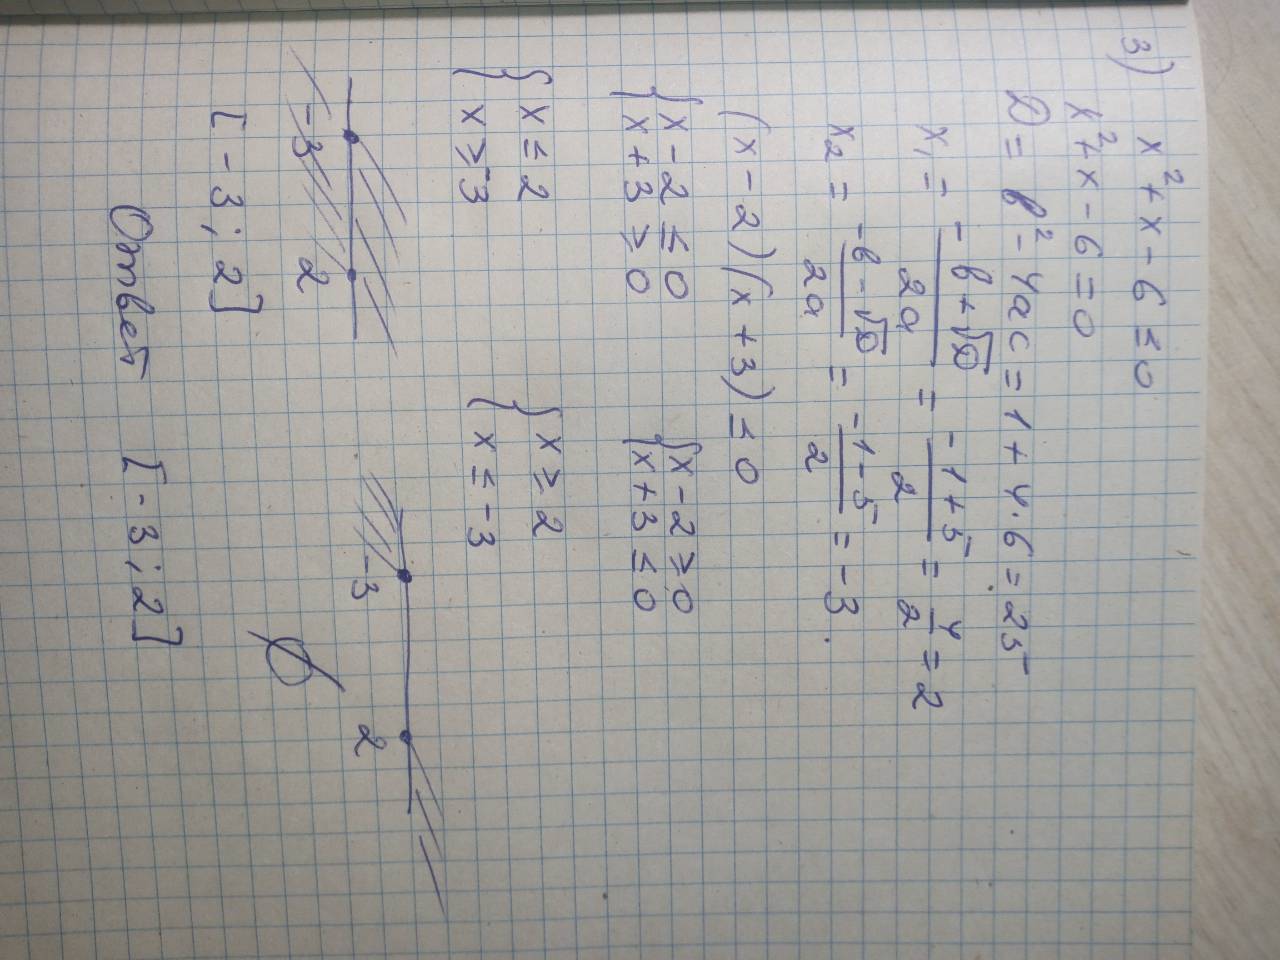 3)
x² + x - 6 ≤ 0
x² + x - 6 = 0
D = b² - 4ac = 1 + 4·6 = 25
x₁ = (-b + √D)/2a = (-1 + 5)/2 = 4/2 = 2
x₂ = (-b - √D)/2a = (-1 - 5)/2 = -3.
(x - 2)(x + 3) ≤ 0
{ x - 2 ≤ 0 { x - 2 ≥ 0
{ x + 3 ≥ 0 { x + 3 ≤ 0
{ x ≤ 2 { x ≥ 2
{ x ≥ -3 { x ≤ -3
-3 2 -3 2
[-3; 2] ∅
Ответ [-3; 2]